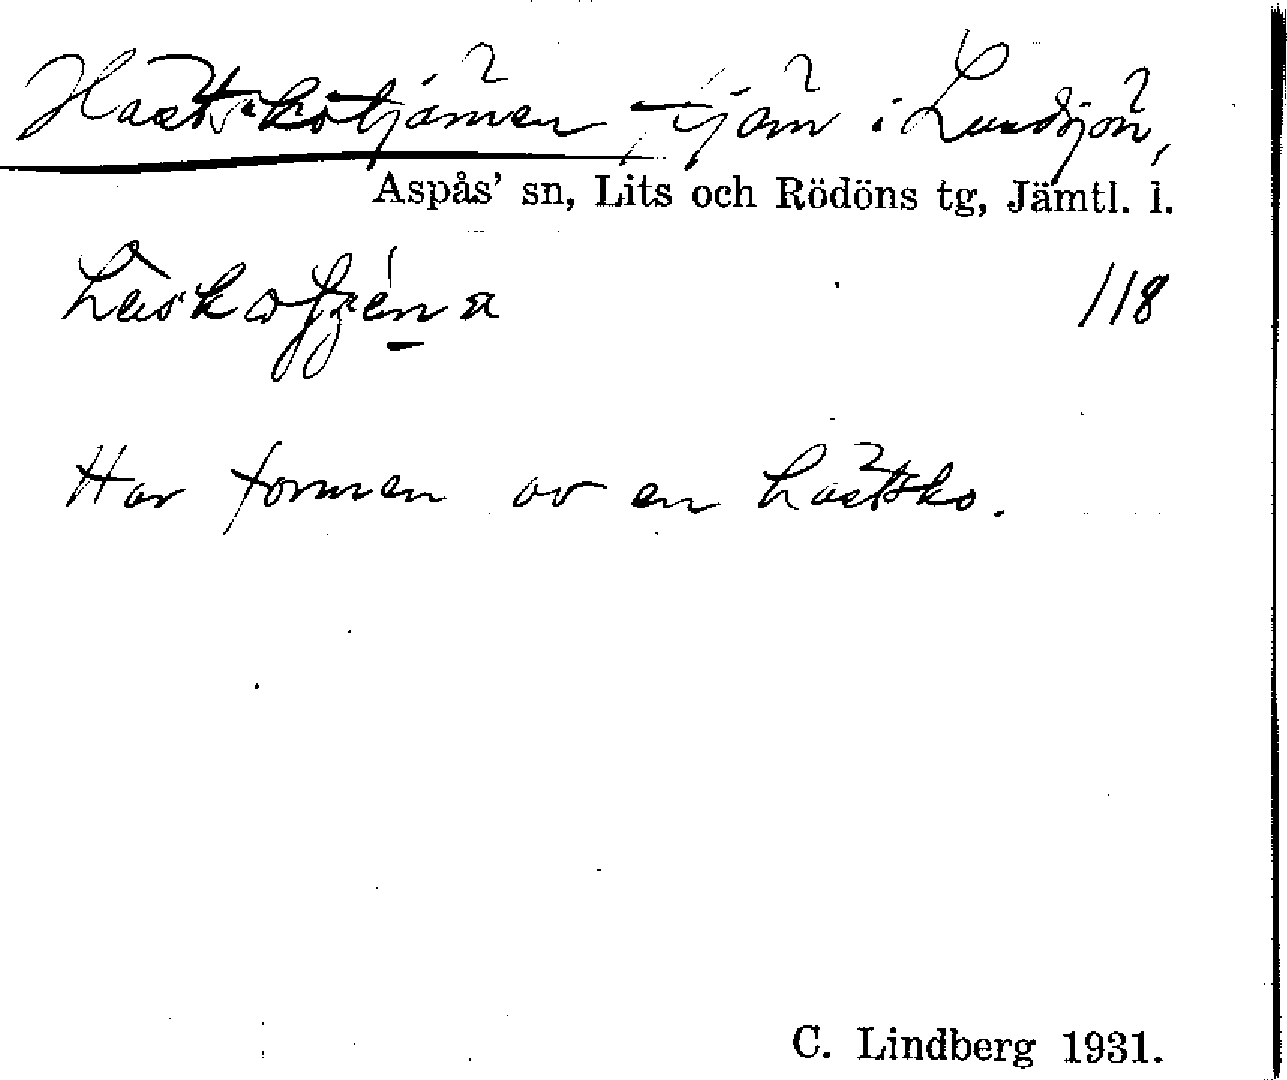 Hästskotjärnen tjärn i Lundsjön,
Aspås' sn, Lits och Rödöns tg, Jämtl. l.
118
Har formen av en hästsko.
C. Lindberg 1931.